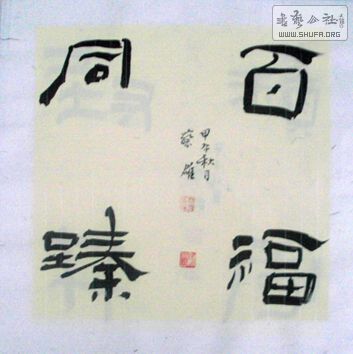 百福
同臻
甲午秋月
蔡
書藝公社
WWW.SHUFA.ORG